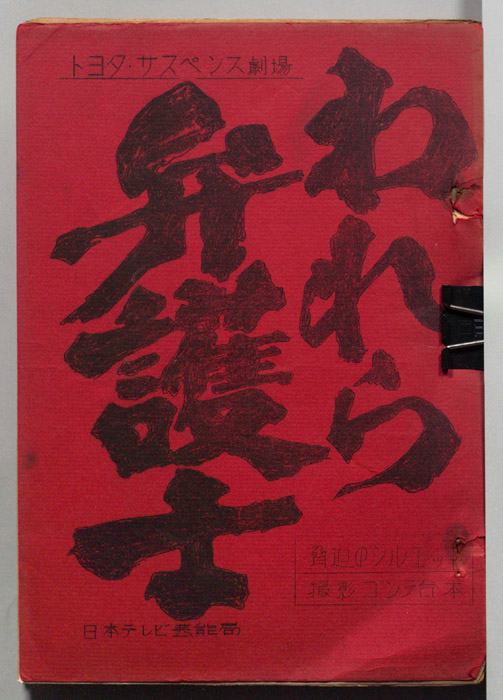 トヨタ・サスペンス劇場
われら
弁護士
脅迫のシルエット
撮影コンテ台本
日本テレビ芸能局